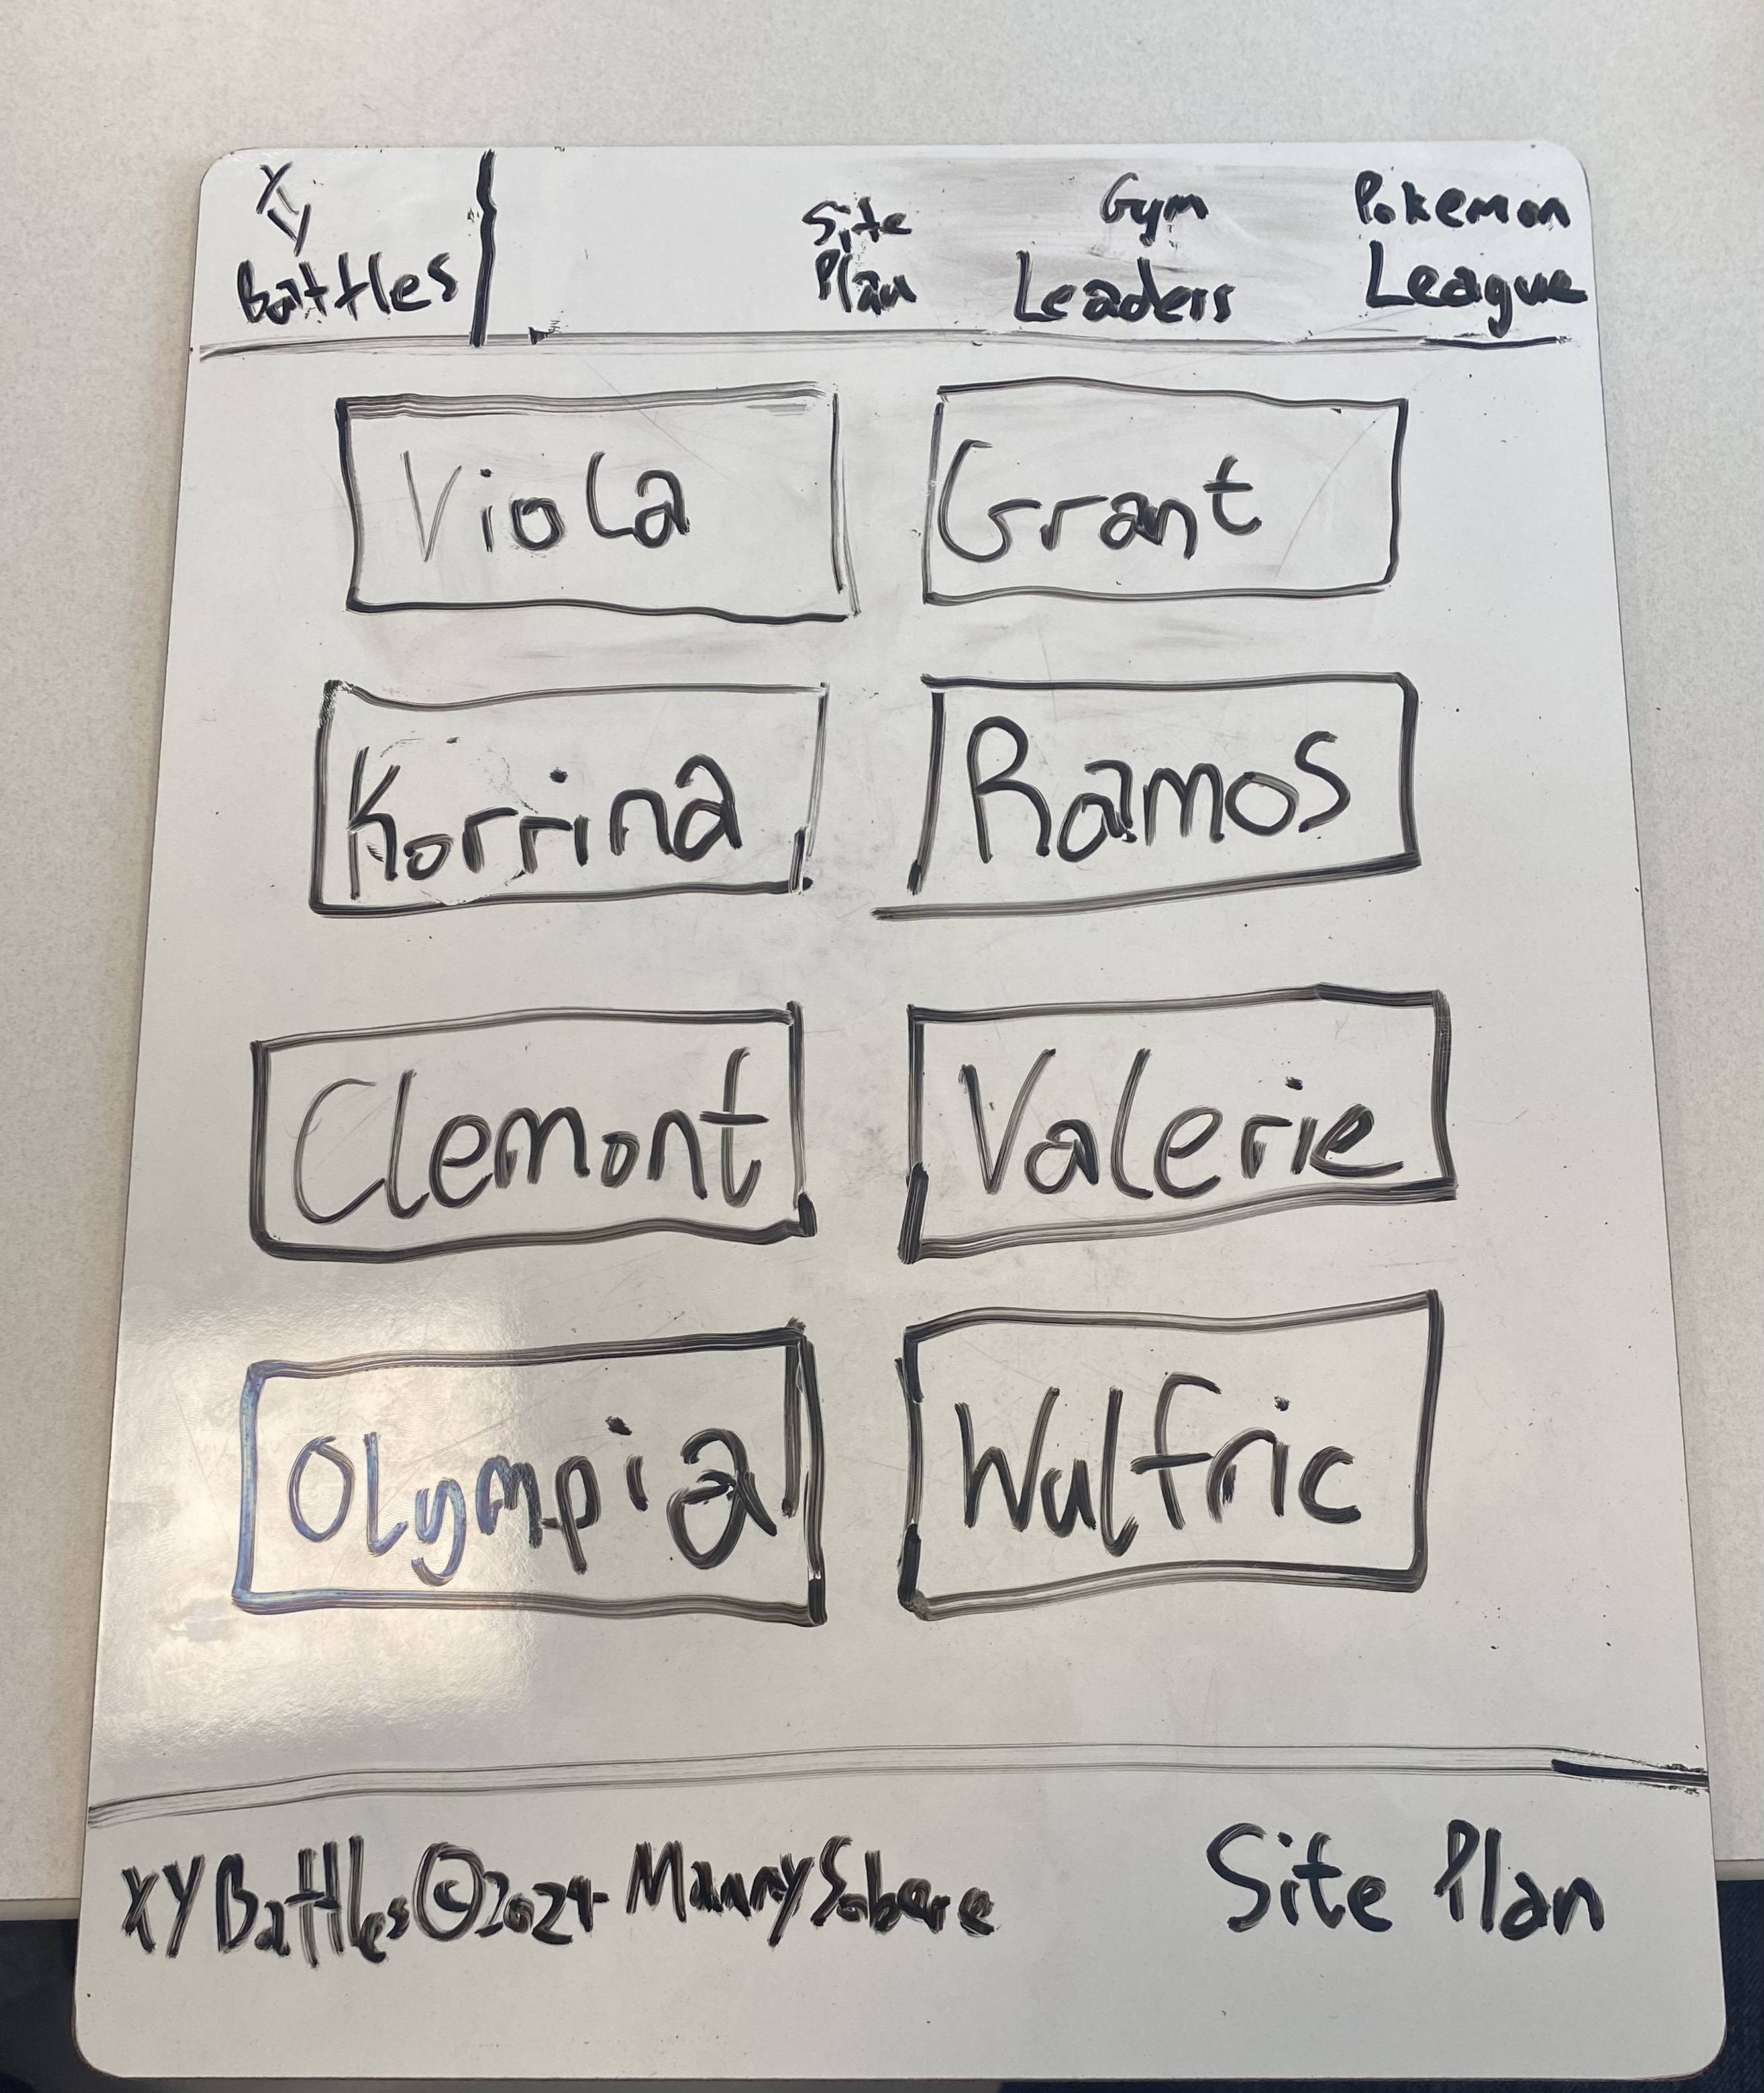 XY
Battles
Site
Plan
Gym
Leaders
Pokemon
League
Viola
Grant
Korrina
Ramos
Clemont
Valerie
Olympia
Wulfric
XY Battles © 2024 Manny Sobere
Site Plan